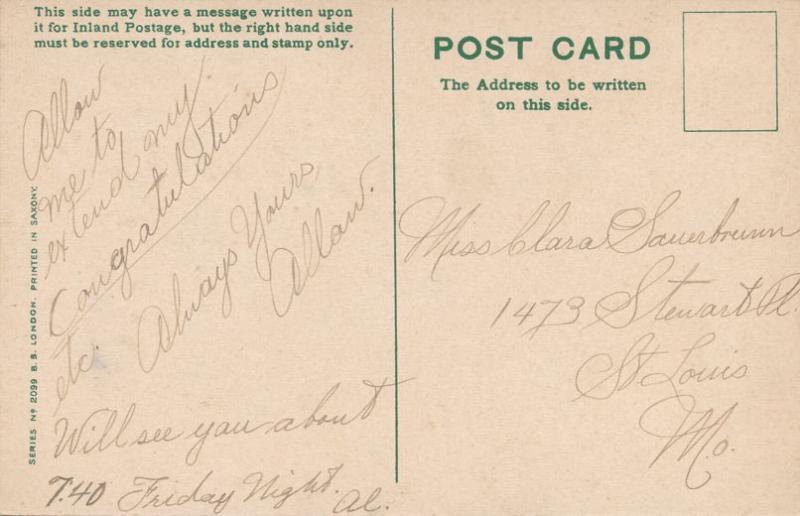 This side may have a message written upon
it for Inland Postage, but the right hand side
must be reserved for address and stamp only.
Allow
me to
extend my
Congratulations
etc.
Always Yours,
Allan.
Will see you about
7.40 Friday Night.
Al.
SERIES Nº 2099 B.B. LONDON. PRINTED IN SAXONY.
POST CARD
The Address to be written
on this side.
Miss Clara Sauerbrunn
1473 Stewart Pl.
St Louis
Mo.